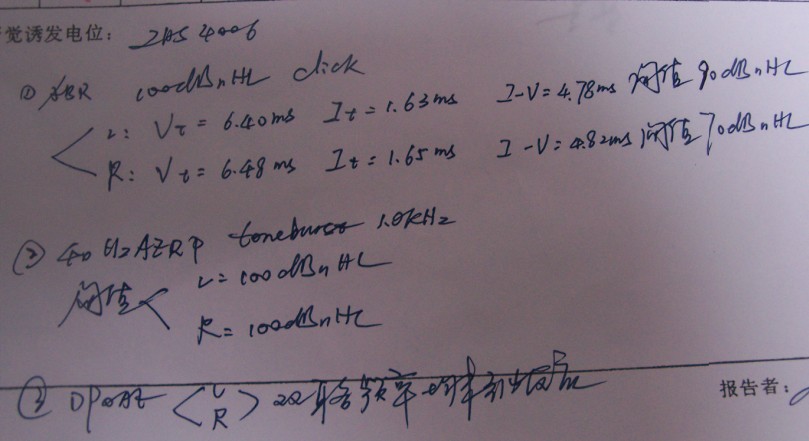 觉诱发电位: IHS 4006
① ABR 100dBnHL click
L: Vt = 6.40ms It = 1.63ms I-V = 4.78ms 阈值 90dBnHL
R: Vt = 6.48ms It = 1.65ms I-V = 4.82ms 阈值 70dBnHL
② 40HzAERP toneburst 1.0kHz
阈值 L = 100dBnHL
R = 100dBnHL
③ DPOAE L R 双耳各频率均未引出反应
报告者: